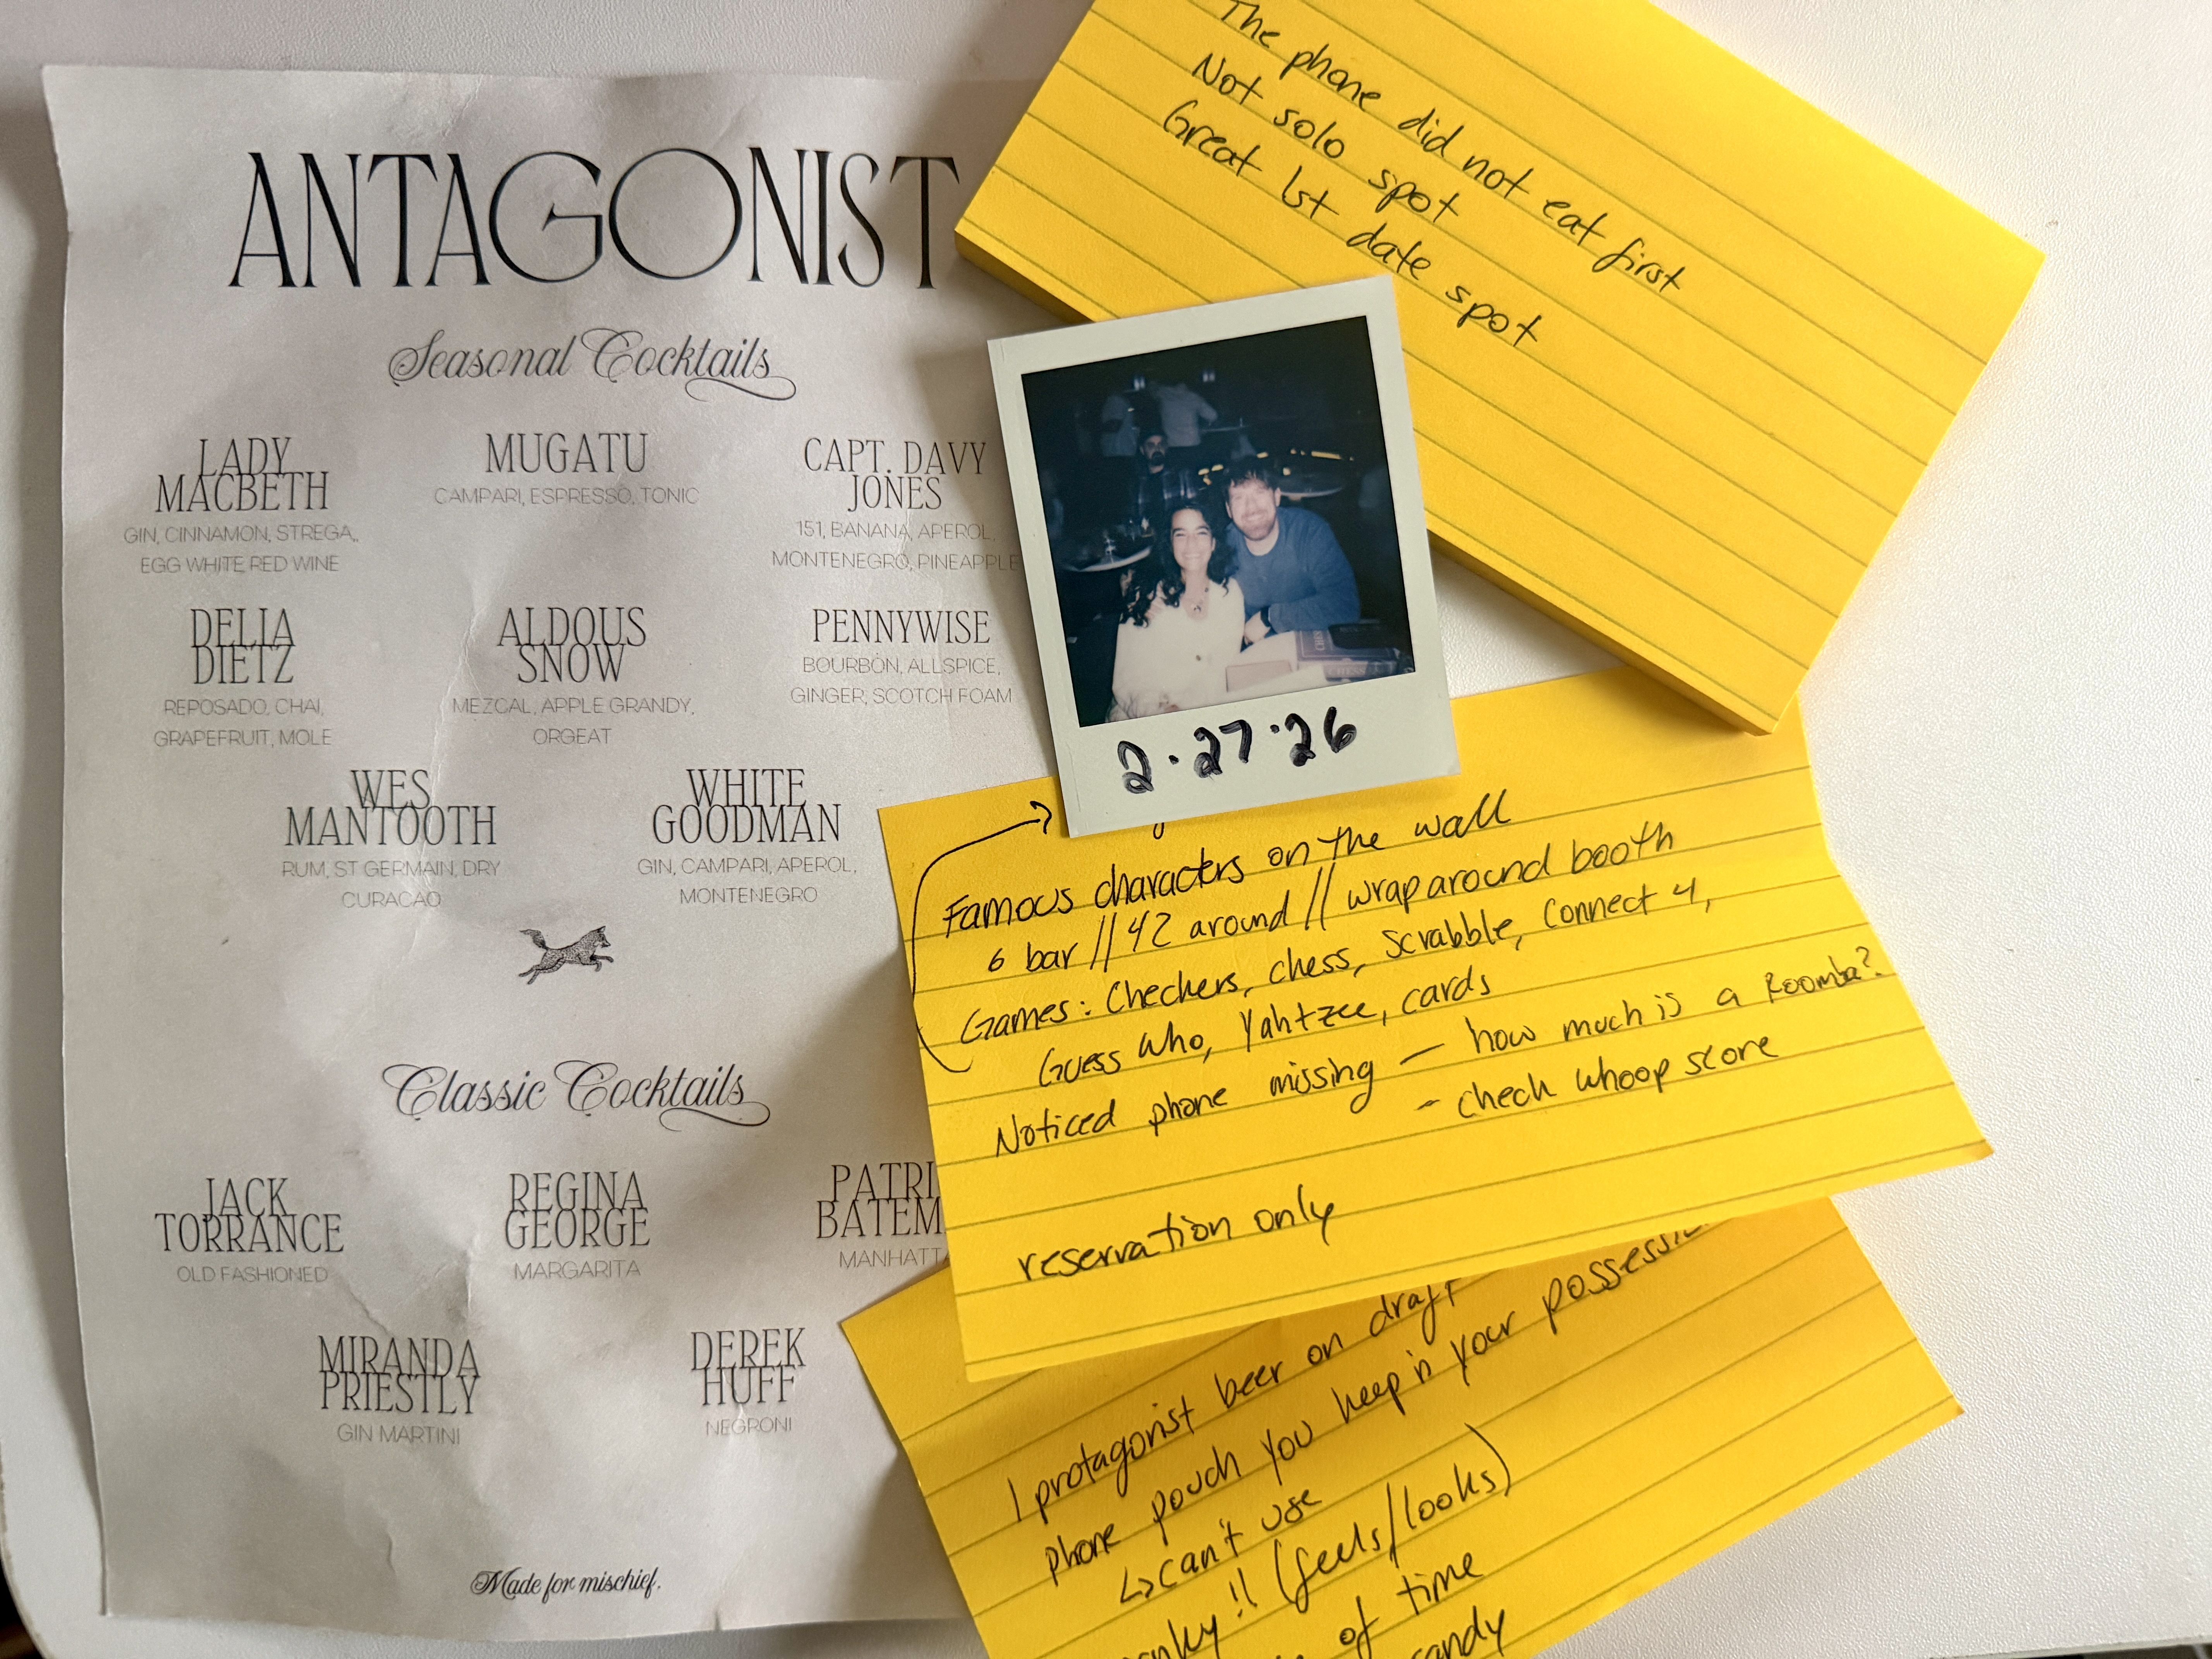 ANTAGONIST
Seasonal Cocktails
LADY
MACBETH
GIN, CINNAMON, STREGA,
EGG WHITE RED WINE
MUGATU
CAMPARI, ESPRESSO, TONIC
CAPT. DAVY
JONES
151, BANANA, APEROL,
MONTENEGRO, PINEAPPLE
DELIA
DIETZ
REPOSADO, CHAI,
GRAPEFRUIT, MOLE
ALDOUS
SNOW
MEZCAL, APPLE GRANDY,
ORGEAT
PENNYWISE
BOURBON, ALLSPICE,
GINGER, SCOTCH FOAM
WES
MANTOOTH
RUM, ST GERMAIN, DRY
CURACAO
WHITE
GOODMAN
GIN, CAMPARI, APEROL,
MONTENEGRO
Classic Cocktails
JACK
TORRANCE
OLD FASHIONED
REGINA
GEORGE
MARGARITA
PATRI
BATEM
MANHATTA
MIRANDA
PRIESTLY
GIN MARTINI
DEREK
HUFF
NEGRONI
Made for mischief.
The phone did not eat first
Not solo spot
Great 1st date spot
CHESS
2.27.26
Famous characters on the wall
6 bar // 42 around // wraparound booth
Games: Checkers, chess, Scrabble, Connect 4,
Guess Who, Yahtzee, cards
Noticed phone missing — how much is a Roomba?
- check whoop score
reservation only
1 protagonist beer on draft
phone pouch you keep in your possessi
↳ can't use
!! (feels/looks)
of time